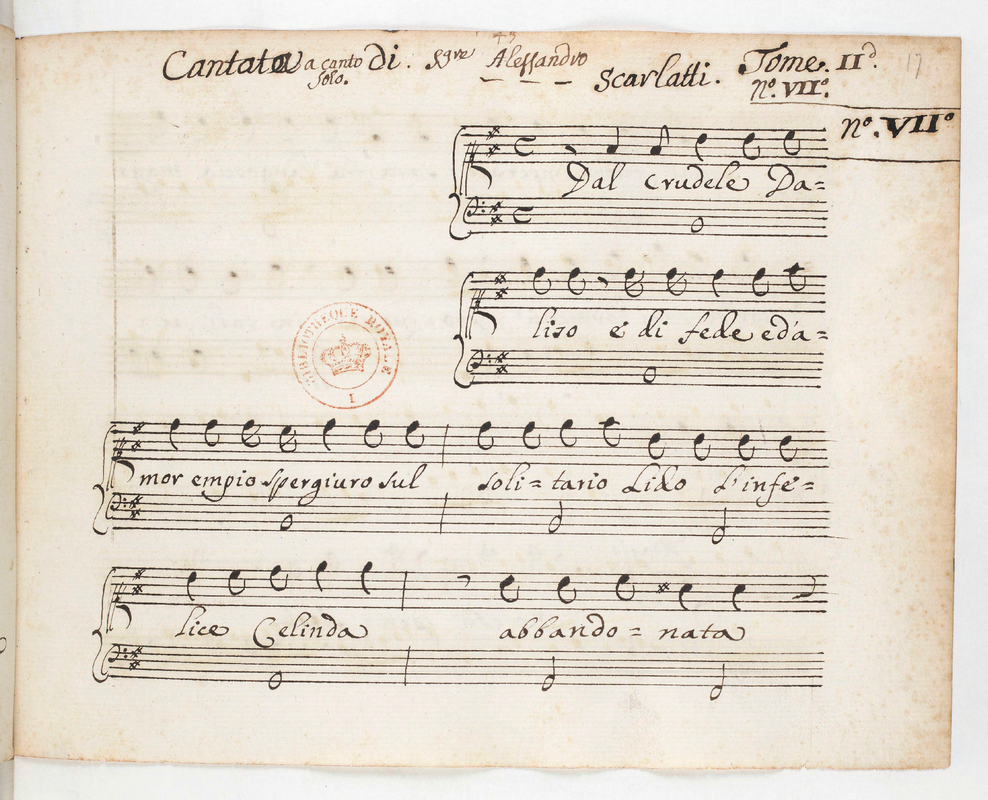 Cantata a canto solo. Di. Sgre Alessandro Scarlatti. Tome. IId. 17
No. VIIo.
No. VIIo
Dal crudele Da=
liso e di fede ed'a=
mor empio spergiuro sul soli=tario Lido L'infe=
lice Celinda abbando=nata
BIBLIOTHEQUE ROYALE
I